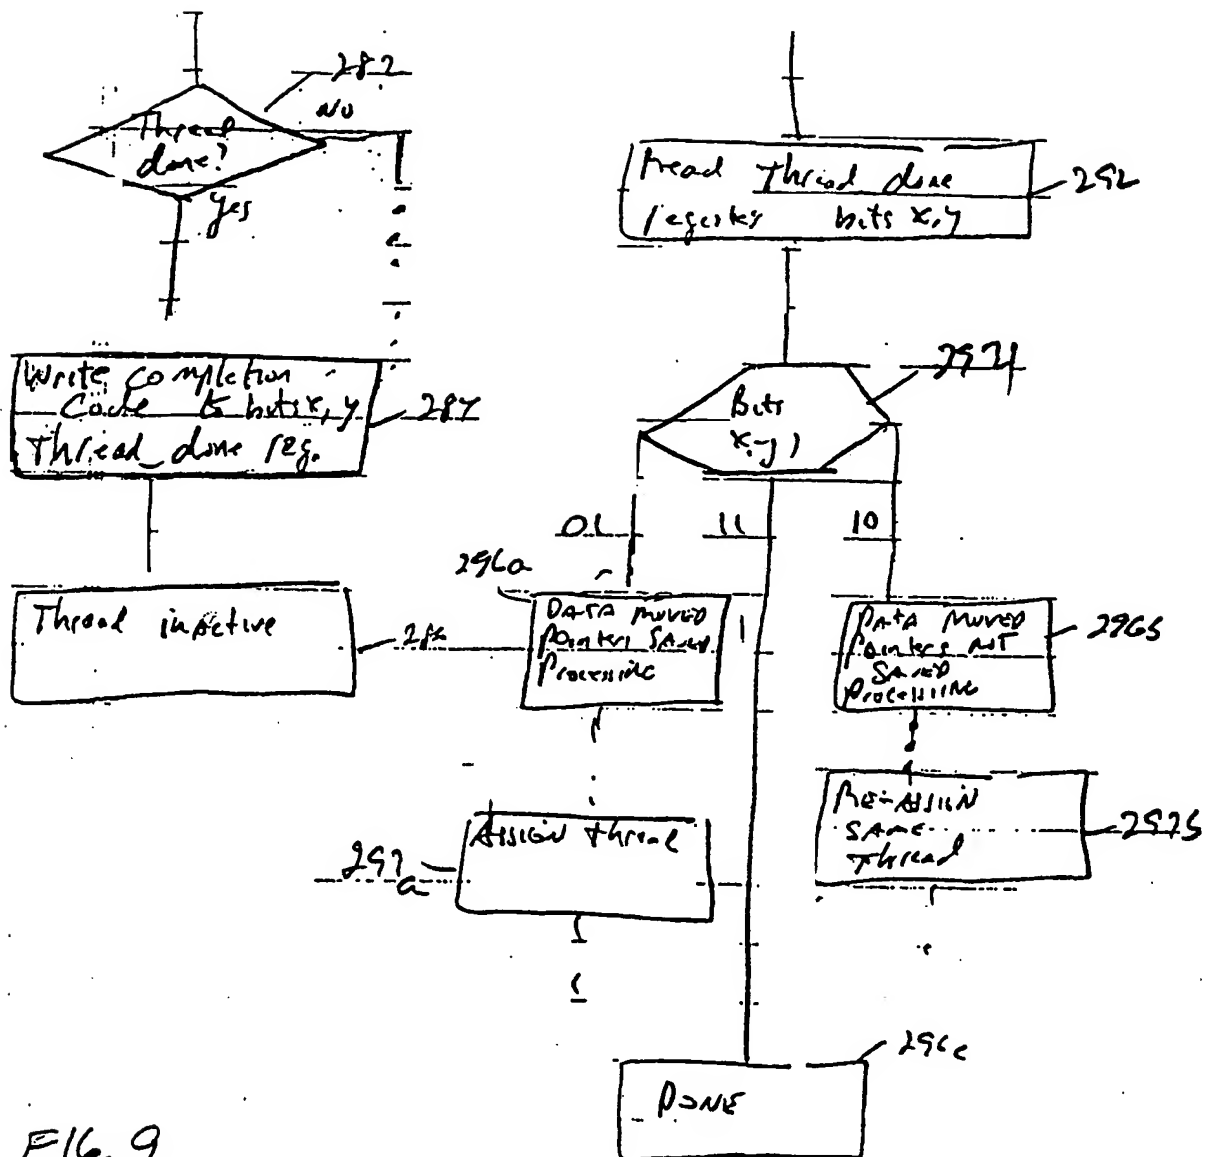 282
NO
Thread
done?
Yes
Write completion
Code to bits x, y
Thread_done reg.
284
Thread inactive
286
Read Thread done
register bits x, y
292
294
Bits
x, y
01
11
10
296a
DATA MOVED
Pointers SAVED
Processing
DATA MOVED
Pointers NOT
SAVED
Processing
296b
ASSIGN thread
297
a
RE-ASSIGN
SAME
Thread
297b
296c
DONE
FIG. 9